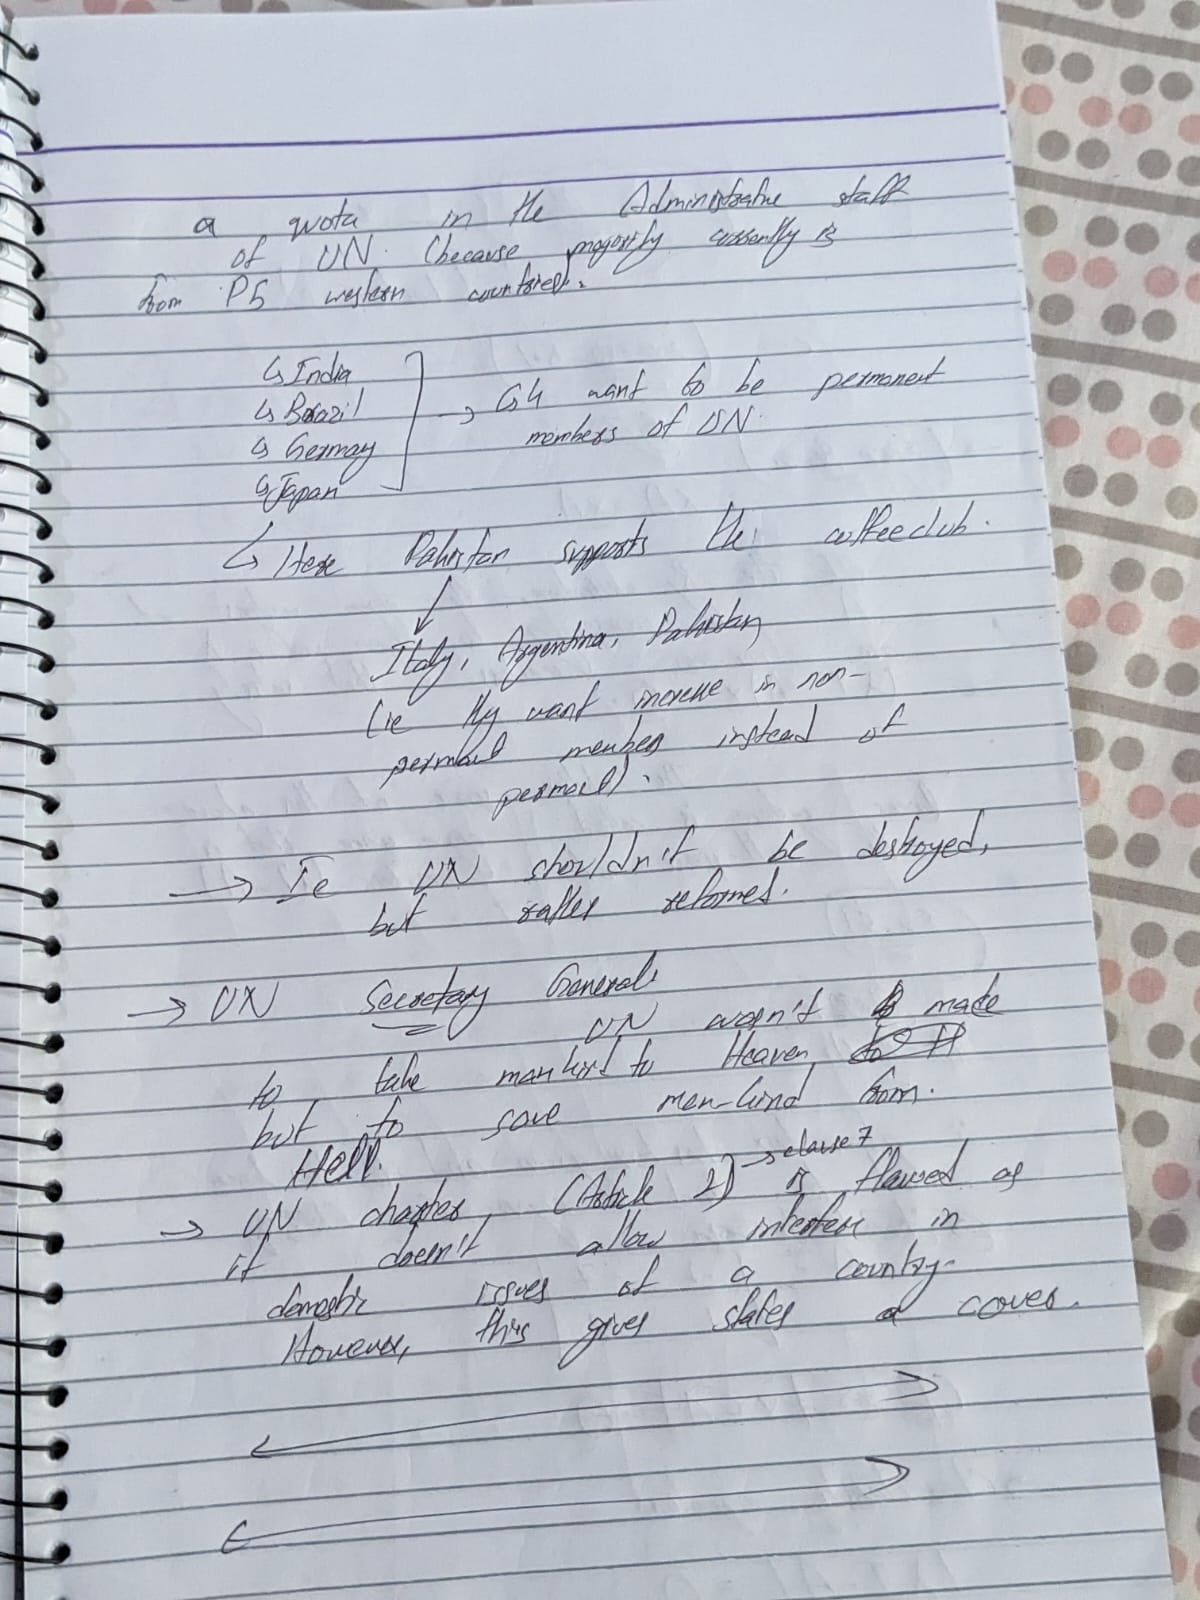 a quota in the Administrative staff
of UN. (because majority currently is
from P5 western countries).
↳ India
↳ Brazil
↳ Germay
↳ Japan
→ G4 want to be permanent
members of UN.
↳ Here Pakistan supports the coffee club.
Italy, Argentina, Pakistan
(ie they want increase in non-
permanent members instead of
permanent).
→ Ie UN shouldn't be destroyed,
but rather reformed.
→ UN Secretary General
UN wasn't made
to take mankind to Heaven,
but to save man-kind from.
Hell.
→ clause 7
→ UN charter, (Article 2) is flawed as
it doesn't allow interfere in
domestic issues of a country.
However, this gives states a cover.